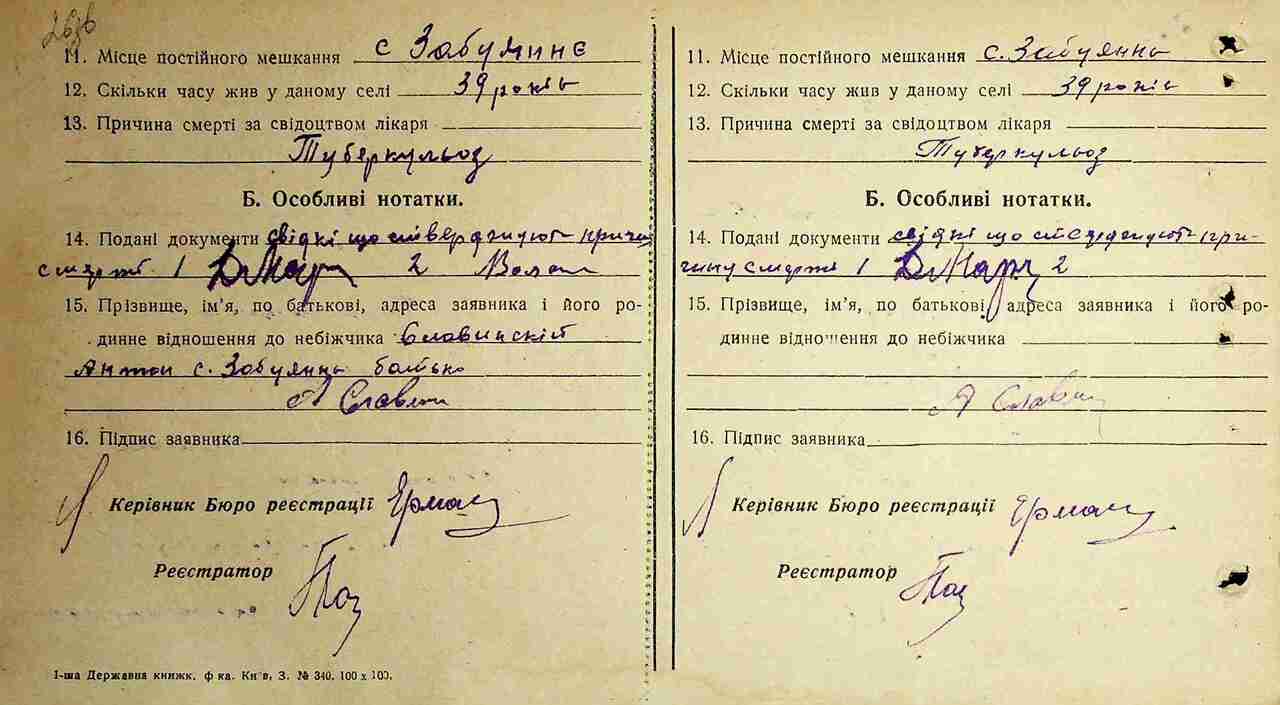 11. Місце постійного мешкання с Забуяннє
12. Скільки часу жив у даному селі 39 років
13. Причина смерті за свідоцтвом лікаря
Туберкульоз
Б. Особливі нотатки.
14. Подані документи свідкі що стверджують причи
смерті 1 2
15. Прізвище, ім'я, по батькові, адреса заявника і його ро-
динне відношення до небіжчика Славинскій
Антон с. Забуянь батько
А Славин
16. Підпис заявника
Керівник Бюро реєстрації Ермак
Реєстратор
1-ша Державна книжк. ф ка. Київ, З. № 340. 100 х 100.
11. Місце постійного мешкання с. Забуянь
12. Скільки часу жив у даному селі 39 років
13. Причина смерті за свідоцтвом лікаря
Туберкульоз
Б. Особливі нотатки.
14. Подані документи свідкі що при-
чину смерті 1 2
15. Прізвище, ім'я, по батькові, адреса заявника і його ро-
динне відношення до небіжчика
А Славин
16. Підпис заявника
Керівник Бюро реєстрації Ермак
Реєстратор